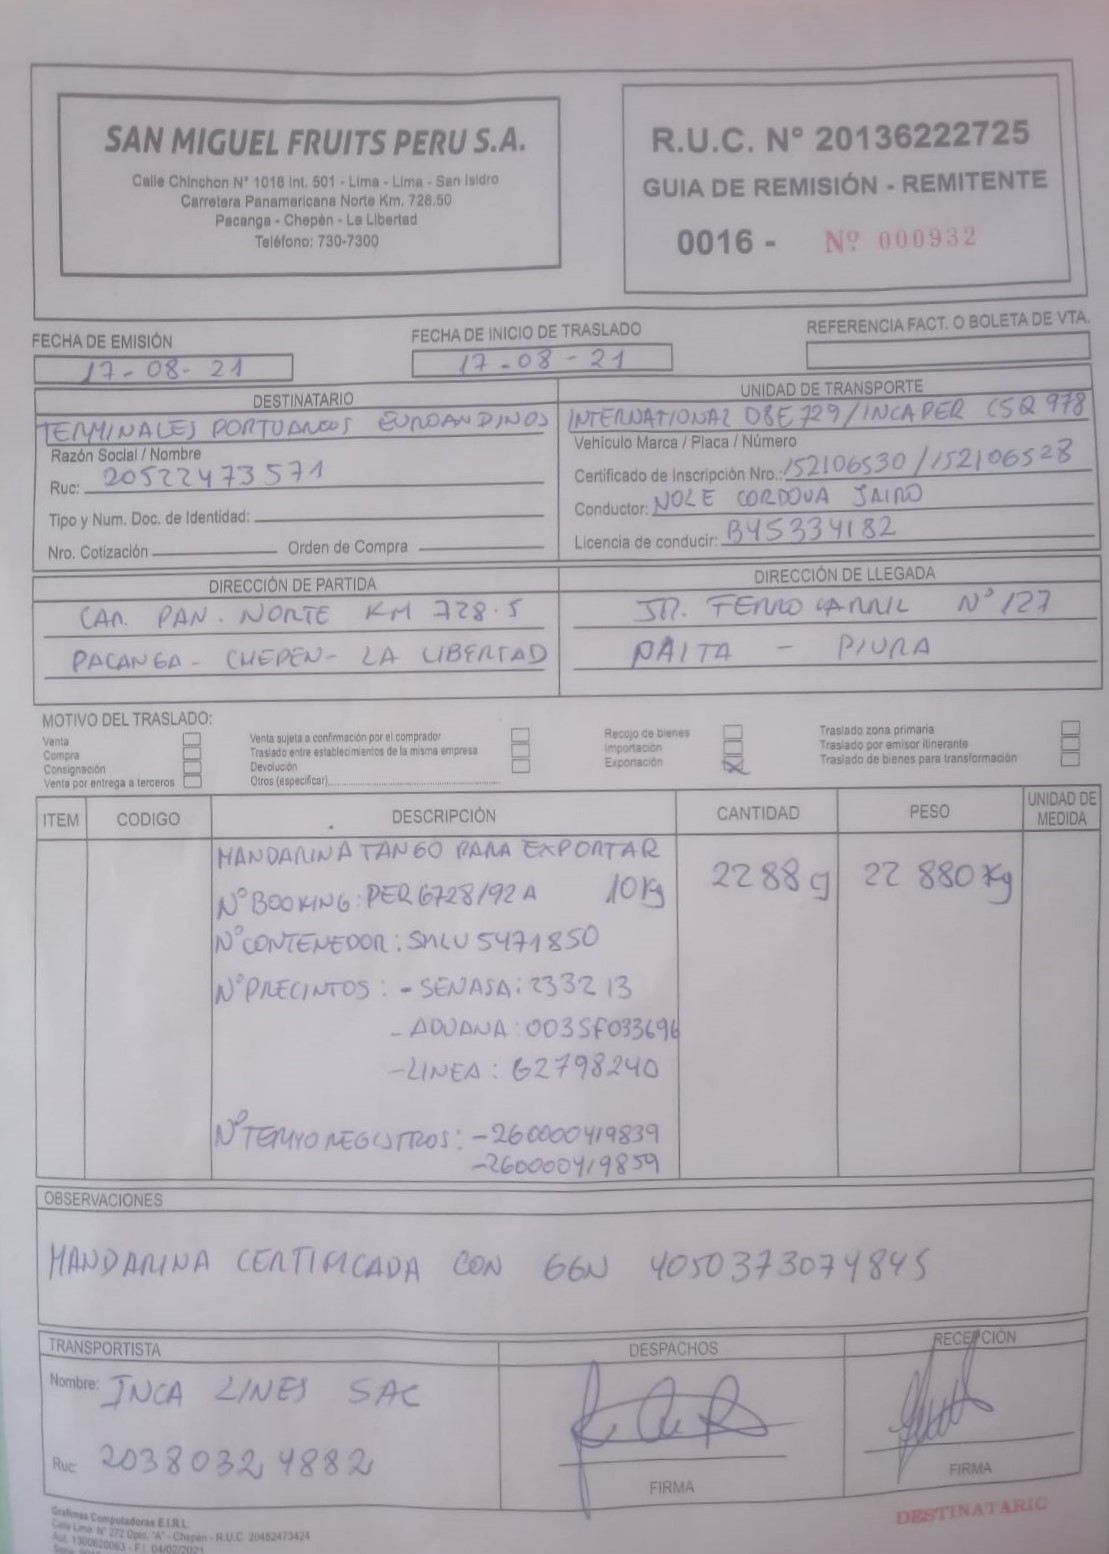 SAN MIGUEL FRUITS PERU S.A.
Calle Chinchon N° 1018 Int. 501 - Lima - Lima - San Isidro
Carretera Panamericana Norte Km. 728.50
Pacanga - Chepén - La Libertad
Teléfono: 730-7300
R.U.C. N° 20136222725
GUIA DE REMISIÓN - REMITENTE
0016 - Nº 000932
FECHA DE EMISIÓN
17-08-21
FECHA DE INICIO DE TRASLADO
17-08-21
REFERENCIA FACT. O BOLETA DE VTA.
DESTINATARIO
TERMINALES PORTUARIOS EUROANDINOS
Razón Social / Nombre
Ruc: 20522473571
Tipo y Num. Doc. de Identidad:
Nro. Cotización Orden de Compra
UNIDAD DE TRANSPORTE
INTERNATIONAL D8E 729/INCAPER CSQ 978
Vehículo Marca / Placa / Número
Certificado de Inscripción Nro.: 152106530/152106528
Conductor: NOLE CORDOVA JAIRO
Licencia de conducir: B45334182
DIRECCIÓN DE PARTIDA
CAR. PAN. NORTE KM 728.5
PACANGA - CHEPEN - LA LIBERTAD
DIRECCIÓN DE LLEGADA
JR. FERROCARRIL N° 127
PAITA - PIURA
MOTIVO DEL TRASLADO:
Venta
Compra
Consignación
Venta por entrega a terceros
Venta sujeta a confirmación por el comprador
Traslado entre establecimientos de la misma empresa
Devolución
Otros (especificar)
Recojo de bienes
Importación
Exportación X
Traslado zona primaria
Traslado por emisor itinerante
Traslado de bienes para transformación
ITEM CODIGO DESCRIPCIÓN CANTIDAD PESO UNIDAD DE MEDIDA
MANDARINA TANGO PARA EXPORTAR
N° BOOKING: PER6728192A 10Kg 2288 22 880 Kg
N° CONTENEDOR: SMLU 5471850
N° PRECINTOS: - SENASA: 233213
- ADUANA: 003SF033696
- LINEA: 62798240
N° TERMOREGISTROS: - 260000419839
- 260000419859
OBSERVACIONES
MANDARINA CERTIFICADA CON GGN 4050373074845
TRANSPORTISTA
Nombre: INCA LINES SAC
Ruc: 20380324882
DESPACHOS
FIRMA
RECEPCIÓN
FIRMA
DESTINATARIO
Grafimas Computadoras E.I.R.L.
Calle Lima N° 272 Dpto. "A" - Chepén - R.U.C. 20482473424
Aut. 1300620063 - F.I. 04/02/2021